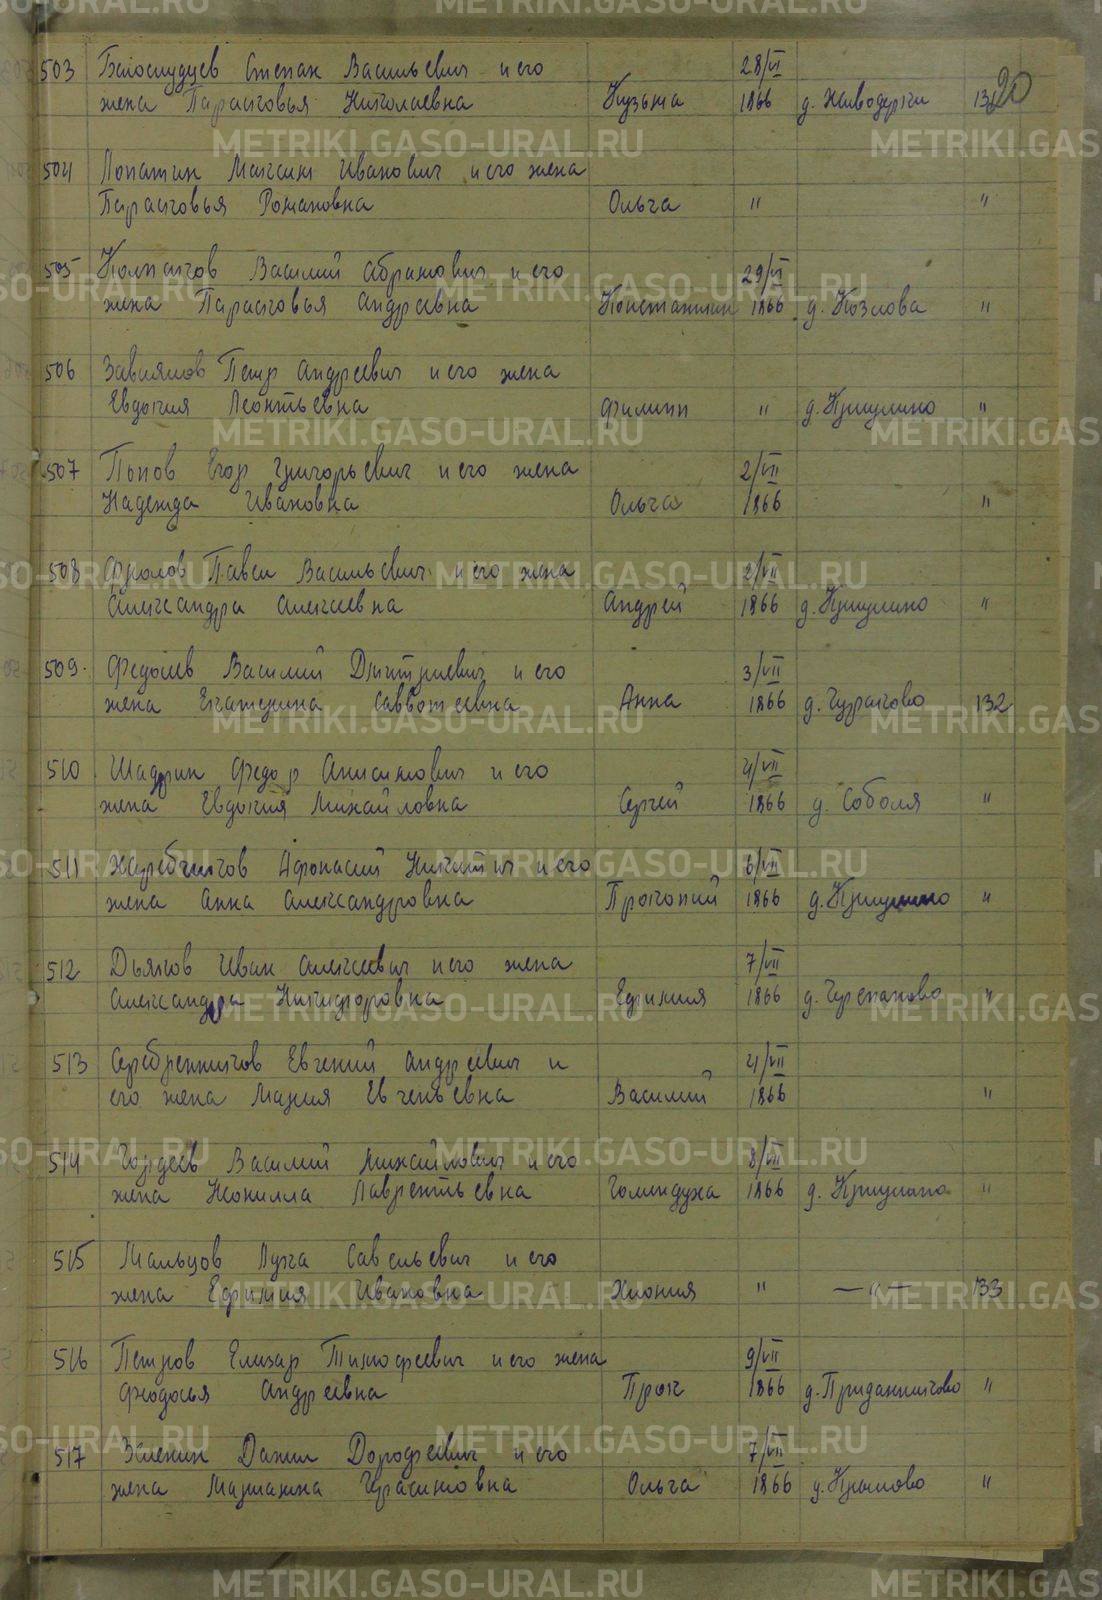 20
503 Белослудцев Степан Васильевич и его 28/VI
жена Парасковья Николаевна Кузьма 1866 д. Живодерки 131
504 Лопатин Максим Иванович и его жена
Парасковья Романовна Ольга " "
505 Колпаков Василий Абрамович и его 29/VI
жена Парасковья Андреевна Константин 1866 д. Козлова "
506 Завиялов Петр Андреевич и его жена
Евдокия Леонтьевна Филипп " д. Криулино "
507 Попов Егор Григорьевич и его жена 2/VII
Надежда Ивановна Ольга 1866 "
508 Фролов Павел Васильевич и его жена 2/VII
Александра Алексеевна Андрей 1866 д. Криулино "
509 Федосеев Василий Дмитриевич и его 3/VII
жена Екатерина Савватеевна Анна 1866 д. Чураково 132
510 Шадрин Федор Анисимович и его 4/VII
жена Евдокия Михайловна Сергей 1866 д. Соболя "
511 Жеребчиков Афонасий Никитич и его 6/VII
жена Анна Александровна Прокопий 1866 д. Криулино "
512 Дьяков Иван Алексеевич и его жена 7/VII
Александра Никифоровна Ефимия 1866 д. Черепаново "
513 Серебренников Евгений Андреевич и 4/VII
его жена Мария Евгеньевна Василий 1866 "
514 Гордеев Василий Михайлович и его 8/VII
жена Неонилла Лаврентьевна Голиндуха 1866 д. Криулино "
515 Мальцов Лука Савельевич и его
жена Ефимия Ивановна Хиония " — " — 133
516 Петров Елизар Тимофеевич и его жена 9/VII
Феодосья Андреевна Прок 1866 д. Приданниково "
517 Зеленин Данил Дорофеевич и его 7/VII
жена Марианна Герасимовна Ольга 1866 д. Крылово "
METRIKI.GASO-URAL.RU